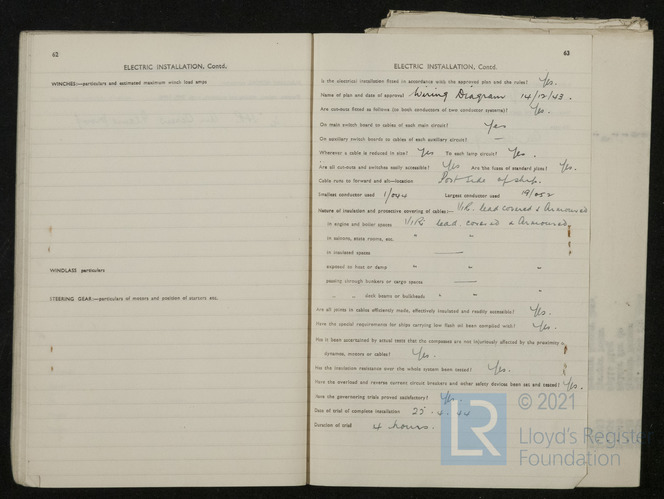 62
ELECTRIC INSTALLATION, Contd.
WINCHES:—particulars and estimated maximum winch load amps
WINDLASS particulars
STEERING GEAR:—particulars of motors and position of starters etc.
63
ELECTRIC INSTALLATION, Contd.
Is the electrical installation fitted in accordance with the approved plan and the rules? Yes.
Name of plan and date of approval Wiring Diagram 14/12/43.
Are cut-outs fitted as follows (in both conductors of two conductor systems)? Yes.
On main switch board to cables of each main circuit? Yes
On auxiliary switch boards to cables of each auxiliary circuit? —
Wherever a cable is reduced in size? Yes To each lamp circuit? Yes.
Are all cut-outs and switches easily accessible? Yes Are the fuses of standard plans? Yes.
Cable runs to forward and aft—location Port side of ship.
Smallest conductor used 1/044 Largest conductor used 19/052
Nature of insulation and protective covering of cables:— V.I.R. lead covered & Armoured
in engine and boiler spaces V.I.R. lead covered & Armoured
in saloons, state rooms, etc. " " "
in insulated spaces —
exposed to heat or damp " " "
passing through bunkers or cargo spaces —
" " deck beams or bulkheads " " "
Are all joints in cables efficiently made, effectively insulated and readily accessible? Yes.
Have the special requirements for ships carrying low flash oil been complied with? Yes.
Has it been ascertained by actual tests that the compasses are not injuriously affected by the proximity of
dynamos, motors or cables? Yes.
Has the insulation resistance over the whole system been tested? Yes.
Have the overload and reverse current circuit breakers and other safety devices been set and tested? Yes.
Have the governing trials proved satisfactory? Yes.
Date of trial of complete installation 4.44
Duration of trial 4 hours.
LR
© 2021
Lloyd's Register
Foundation